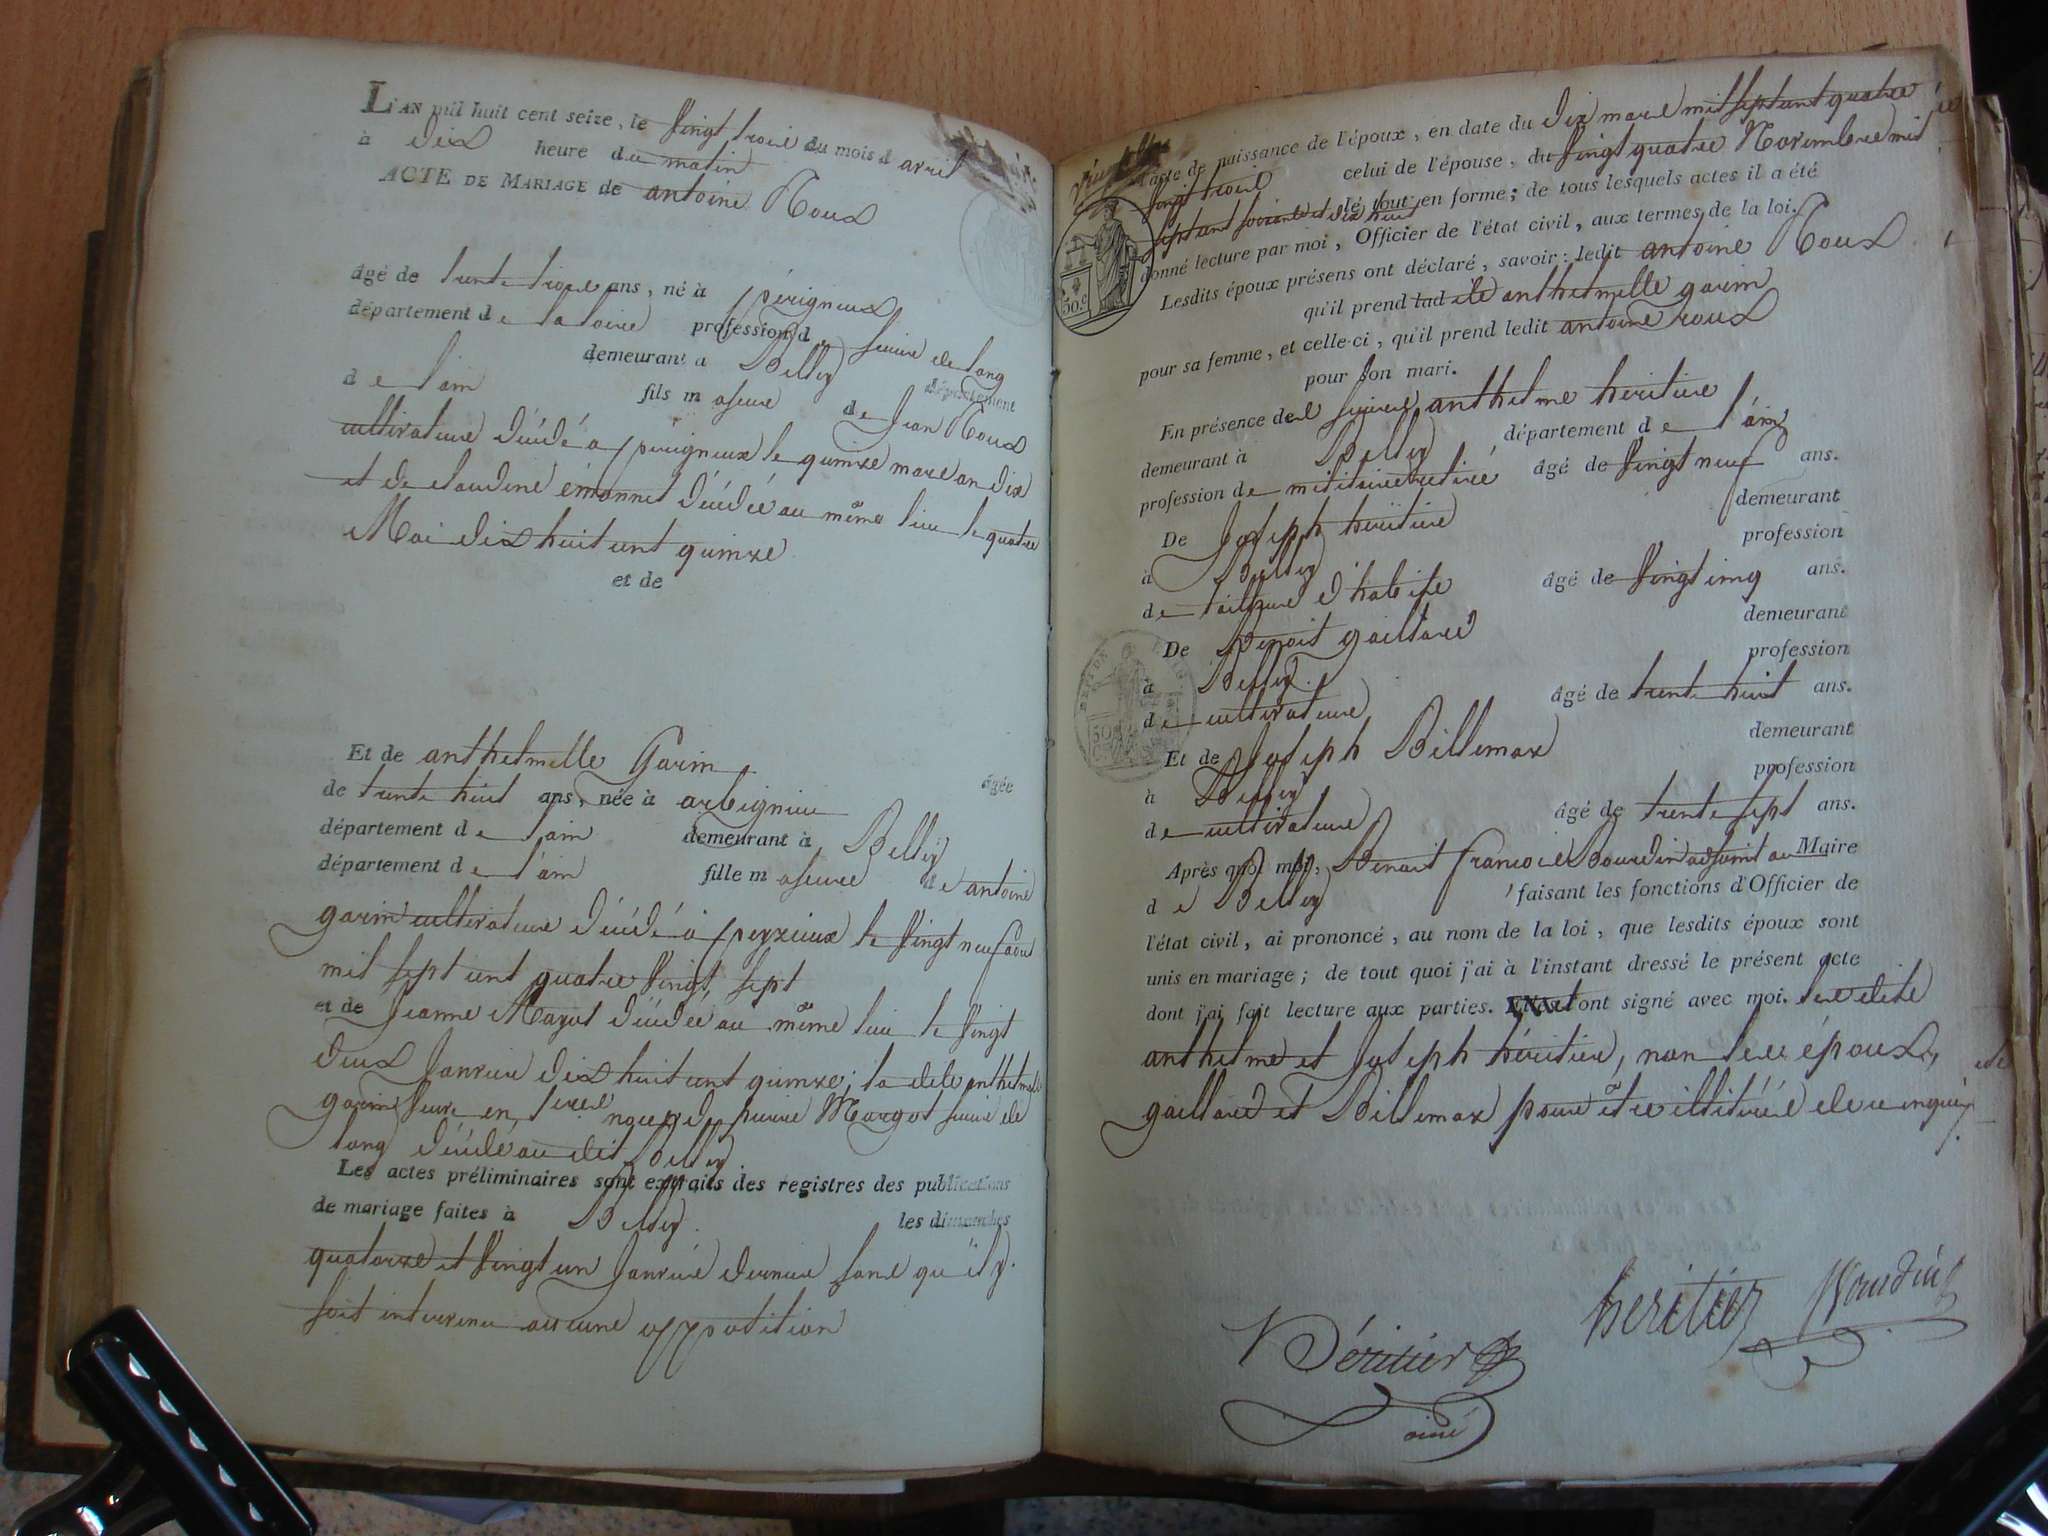 L'AN mil huit cent seize, le vingt trois du mois d avril
à dix heure du matin
ACTE DE MARIAGE de antoine Roux
âgé de trente trois ans, né à périgneux
département de la loire profession d e scieur de long
demeurant à Belley département
de l'ain fils m ajeur de Jean Roux
cultivateur décédé a périgneux le quinze mars an dix
et de claudine émonnet décédée au même lieu le quatre
Mai dix huit cent quinze
et de
Et de anthelmette Garin âgée
de trente huit ans, née à arbignieu
département de l'ain demeurant à Belley
département de l'ain fille m ajeure de antoine
garin cultivateur décédé à peyzieux le vingt neuf aout
mil sept cent quatre vingt sept
et de Jeanne Mayot décédée au même lieu le vingt
deux Janvier dix huit cent quinze; la dite anthelmette
garin veuve en pierre Margot scieur de
long décédé au dit Belley
Les actes préliminaires sont extraits des registres des publications
de mariage faites à Belley. les dimanches
quatorze et vingt un Janvier dernier sans qu'il y
soit intervenu aucune opposition
l'acte de naissance de l'époux, en date du dix mars mil sept cent quatre
vingt trois celui de l'épouse, du vingt quatre Novembre mil
sept cent soixante et dix huit le tout en forme; de tous lesquels actes il a été
donné lecture par moi, Officier de l'état civil, aux termes de la loi.
Lesdits époux présens ont déclaré, savoir: ledit antoine Roux
qu'il prend lad ite anthelmette garin
pour sa femme, et celle-ci, qu'il prend ledit antoine roux
pour son mari.
En présence des sieurs anthelme heritier
demeurant à Belley département de l'ain
profession de militaire retiré âgé de vingt neuf ans.
De Joseph héritier demeurant
à Belley profession
de tailleur d'habits âgé de vingt cinq ans.
De Benoit gaillard demeurant
à Belley. profession
de cultivateur âgé de trente huit ans.
Et de Joseph Billemaz demeurant
à Belley profession
de cultivateur âgé de trente sept ans.
Après quoi moi, Benoit francois Bourdin adjoint au Maire
de Belley faisant les fonctions d'Officier de
l'état civil, ai prononcé, au nom de la loi, que lesdits époux sont
unis en mariage; de tout quoi j'ai à l'instant dressé le présent acte
dont j'ai fait lecture aux parties. ont signé avec moi. les dits
anthelme et Joseph héritier, non les époux,
gaillard et Billemaz pour être illitérés de ce enquis.
héritier
Héritier
ainé